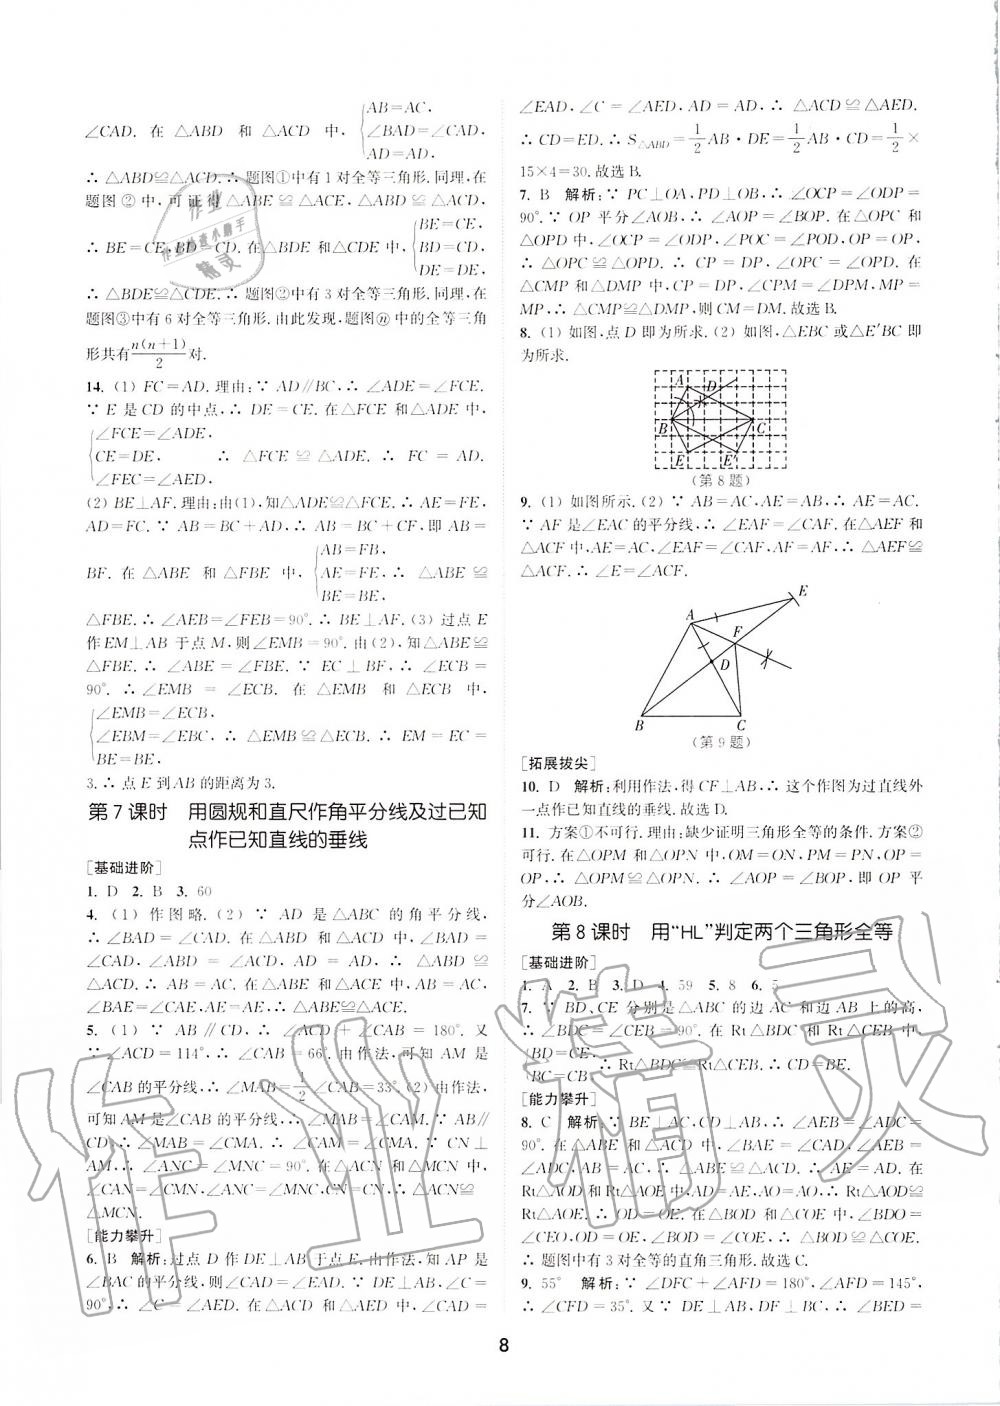 AB=AC,
∠CAD. 在 △ABD 和 △ACD 中, ∠BAD=∠CAD,
AD=AD,
∴ △ABD≌△ACD. ∴ 题图①中有1对全等三角形. 同理, 在
题图②中, 可证得△ABE≌△ACE, △ABD≌△ACD,
BE=CE,
∴ BE=CE, BD=CD. 在△BDE 和△CDE 中, BD=CD,
DE=DE,
∴ △BDE≌△CDE. ∴ 题图②中有3对全等三角形. 同理, 在
题图③中有6对全等三角形. 由此发现, 题图ⓝ中的全等三角
形共有n(n+1)/2对.
14. (1) FC=AD. 理由: ∵ AD∥BC, ∴ ∠ADE=∠FCE.
∵ E 是CD 的中点, ∴ DE=CE. 在△FCE 和△ADE 中,
∠FCE=∠ADE,
CE=DE, ∴ △FCE≌△ADE. ∴ FC=AD.
∠FEC=∠AED,
(2) BE⊥AF. 理由: 由(1), 知△ADE≌△FCE, ∴ AE=FE,
AD=FC. ∵ AB=BC+AD, ∴ AB=BC+CF, 即 AB=
AB=FB,
BF. 在 △ABE 和 △FBE 中, AE=FE, ∴ △ABE≌
BE=BE,
△FBE. ∴ ∠AEB=∠FEB=90°. ∴ BE⊥AF. (3) 过点 E
作EM⊥AB 于点 M, 则∠EMB=90°. 由(2), 知△ABE≌
△FBE. ∴ ∠ABE=∠FBE. ∵ EC⊥BF, ∴ ∠ECB=
90°. ∴ ∠EMB=∠ECB. 在 △EMB 和 △ECB 中,
∠EMB=∠ECB,
∠EBM=∠EBC, ∴ △EMB≌△ECB. ∴ EM=EC=
BE=BE,
3. ∴ 点 E 到AB 的距离为 3.
第 7 课时 用圆规和直尺作角平分线及过已知
点作已知直线的垂线
[基础进阶]
1. D 2. B 3. 60
4. (1) 作图略. (2) ∵ AD 是 △ABC 的角平分线,
∴ ∠BAD=∠CAD. 在 △ABD 和 △ACD 中, AB=
AC, ∠BAD=∠CAD, AD=AD, ∴ △ABD≌
△ACD. ∴ AB=AC. 在 △ABE 和 △ACE 中, AB=AC,
∠BAE=∠CAE, AE=AE, ∴ △ABE≌△ACE.
5. (1) ∵ AB∥CD, ∴ ∠ACD+∠CAB=180°. 又
∵ ∠ACD=114°, ∴ ∠CAB=66°. 由作法, 可知 AM 是
∠CAB 的平分线, ∴ ∠MAB=1/2∠CAB=33°. (2) 由作法,
可知 AM 是∠CAB 的平分线, ∴ ∠MAB=∠CAM. ∵ AB∥
CD, ∴ ∠MAB=∠CMA. ∴ ∠CAM=∠CMA. ∵ CN⊥
AM, ∴ ∠ANC=∠MNC=90°. 在△ACN 和△MCN 中,
∠CAN=∠CMN, ∠ANC=∠MNC, CN=CN, ∴ △CAN≌
△MCN.
[能力攀升]
6. B 解析: 过点 D 作 DE⊥AB 于点 E. 由作法, 知 AP 是
∠BAC 的平分线, 则∠CAD=∠EAD. ∵ DE⊥AB, ∠C=
90°, ∴ ∠C=∠AED. 在△ACD 和△AED 中, ∠CAD=
∠EAD, ∠C=∠AED, AD=AD, ∴ △ACD≌△AED.
∴ CD=ED. ∴ S△ABD=1/2AB·DE=1/2AB·CD=1/2×
15×4=30. 故选 B.
7. B 解析: ∵ PC⊥OA, PD⊥OB, ∴ ∠OCP=∠ODP=
90°. ∵ OP 平分∠AOB, ∴ ∠AOP=∠BOP. 在△OPC 和
△OPD 中, ∠OCP=∠ODP, ∠POC=∠POD, OP=OP,
∴ △OPC≌△OPD. ∴ CP=DP, ∠CPO=∠DPO. 在
△CMP 和△DMP 中, CP=DP, ∠CPM=∠DPM, MP=
MP, ∴ △CMP≌△DMP, 则 CM=DM. 故选 B.
8. (1) 如图, 点 D 即为所求. (2) 如图, △EBC 或△E′BC 即
为所求.
A D
B C
E E′
(第 8 题)
9. (1) 如图所示. (2) ∵ AB=AC, AE=AB, ∴ AE=AC.
∵ AF 是∠EAC 的平分线, ∴ ∠EAF=∠CAF. 在△AEF 和
△ACF 中, AE=AC, ∠EAF=∠CAF, AF=AF, ∴ △AEF≌
△ACF. ∴ ∠E=∠ACF.
E
A
F
D
B C
(第 9 题)
[拓展拔尖]
10. D 解析: 利用作法, 得 CF⊥AB, ∴ 这个作图为过直线外
一点作已知直线的垂线. 故选 D.
11. 方案①不可行. 理由: 缺少证明三角形全等的条件. 方案②
可行. 在△OPM 和△OPN 中, OM=ON, PM=PN, OP=
OP, ∴ △OPM≌△OPN. ∴ ∠AOP=∠BOP, 即 OP 平
分∠AOB.
第 8 课时 用“HL”判定两个三角形全等
[基础进阶]
1. A 2. B 3. D 4. 59 5. 8 6. 5
7. ∵ BD、CE 分别是△ABC 的边 AC 和边 AB 上的高,
∴ ∠BDC=∠CEB=90°. 在 Rt△BDC 和 Rt△CEB 中,
BD=CE,
BC=CB, ∴ Rt△BDC≌Rt△CEB. ∴ CD=BE.
[能力攀升]
8. C 解析: ∵ BE⊥AC, CD⊥AB, ∴ ∠AEB=∠ADC=
90°. 在△ABE 和△ACD 中, ∠BAE=∠CAD, ∠AEB=
∠ADC, AB=AC, ∴ △ABE≌△ACD. ∴ AE=AD. 在
Rt△AOD 和 Rt△AOE 中, AD=AE, AO=AO, ∴ Rt△AOD≌
Rt△AOE. ∴ OD=OE. 在△BOD 和△COE 中, ∠BDO=
∠CEO, OD=OE, ∠BOD=∠COE, ∴ △BOD≌△COE.
∴ 题图中有 3 对全等的直角三角形. 故选 C.
9. 55° 解析: ∵ ∠DFC+∠AFD=180°, ∠AFD=145°,
∴ ∠CFD=35°. 又∵ DE⊥AB, DF⊥BC, ∴ ∠BED=
8
作业精灵